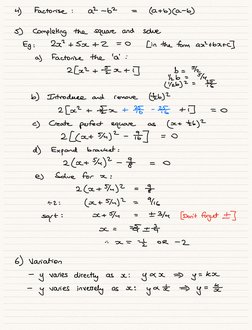 4) Factorise : a² - b² = (a+b)(a-b)
5) Completing the square and solve
Eg: 2x² + 5x + 2 = 0 [in the form ax²+bx+c]
a) Factorise the 'a' :
2[x² + 5/2 x + 1] b = 5/2
½b = 5/4
(½b)² = 25/16
b) Introduce and remove (½b)²
2[x² + 5/2 x + 25/16 - 25/16 + 1] = 0
c) Create perfect square as (x + ½b)²
2[(x + 5/4)² - 9/16] = 0
d) Expand bracket:
2(x + 5/4)² - 9/8 = 0
e) Solve for x :
2(x + 5/4)² = 9/8
÷2: (x + 5/4)² = 9/16
sqrt : x + 5/4 = ± 3/4 [Don't forget ±]
∴ x = OR -2
6) Variation
- y varies directly as x: y ∝ x ⇒ y = kx
- y varies inversely as x: y ∝ 1/x ⇒ y = k/x